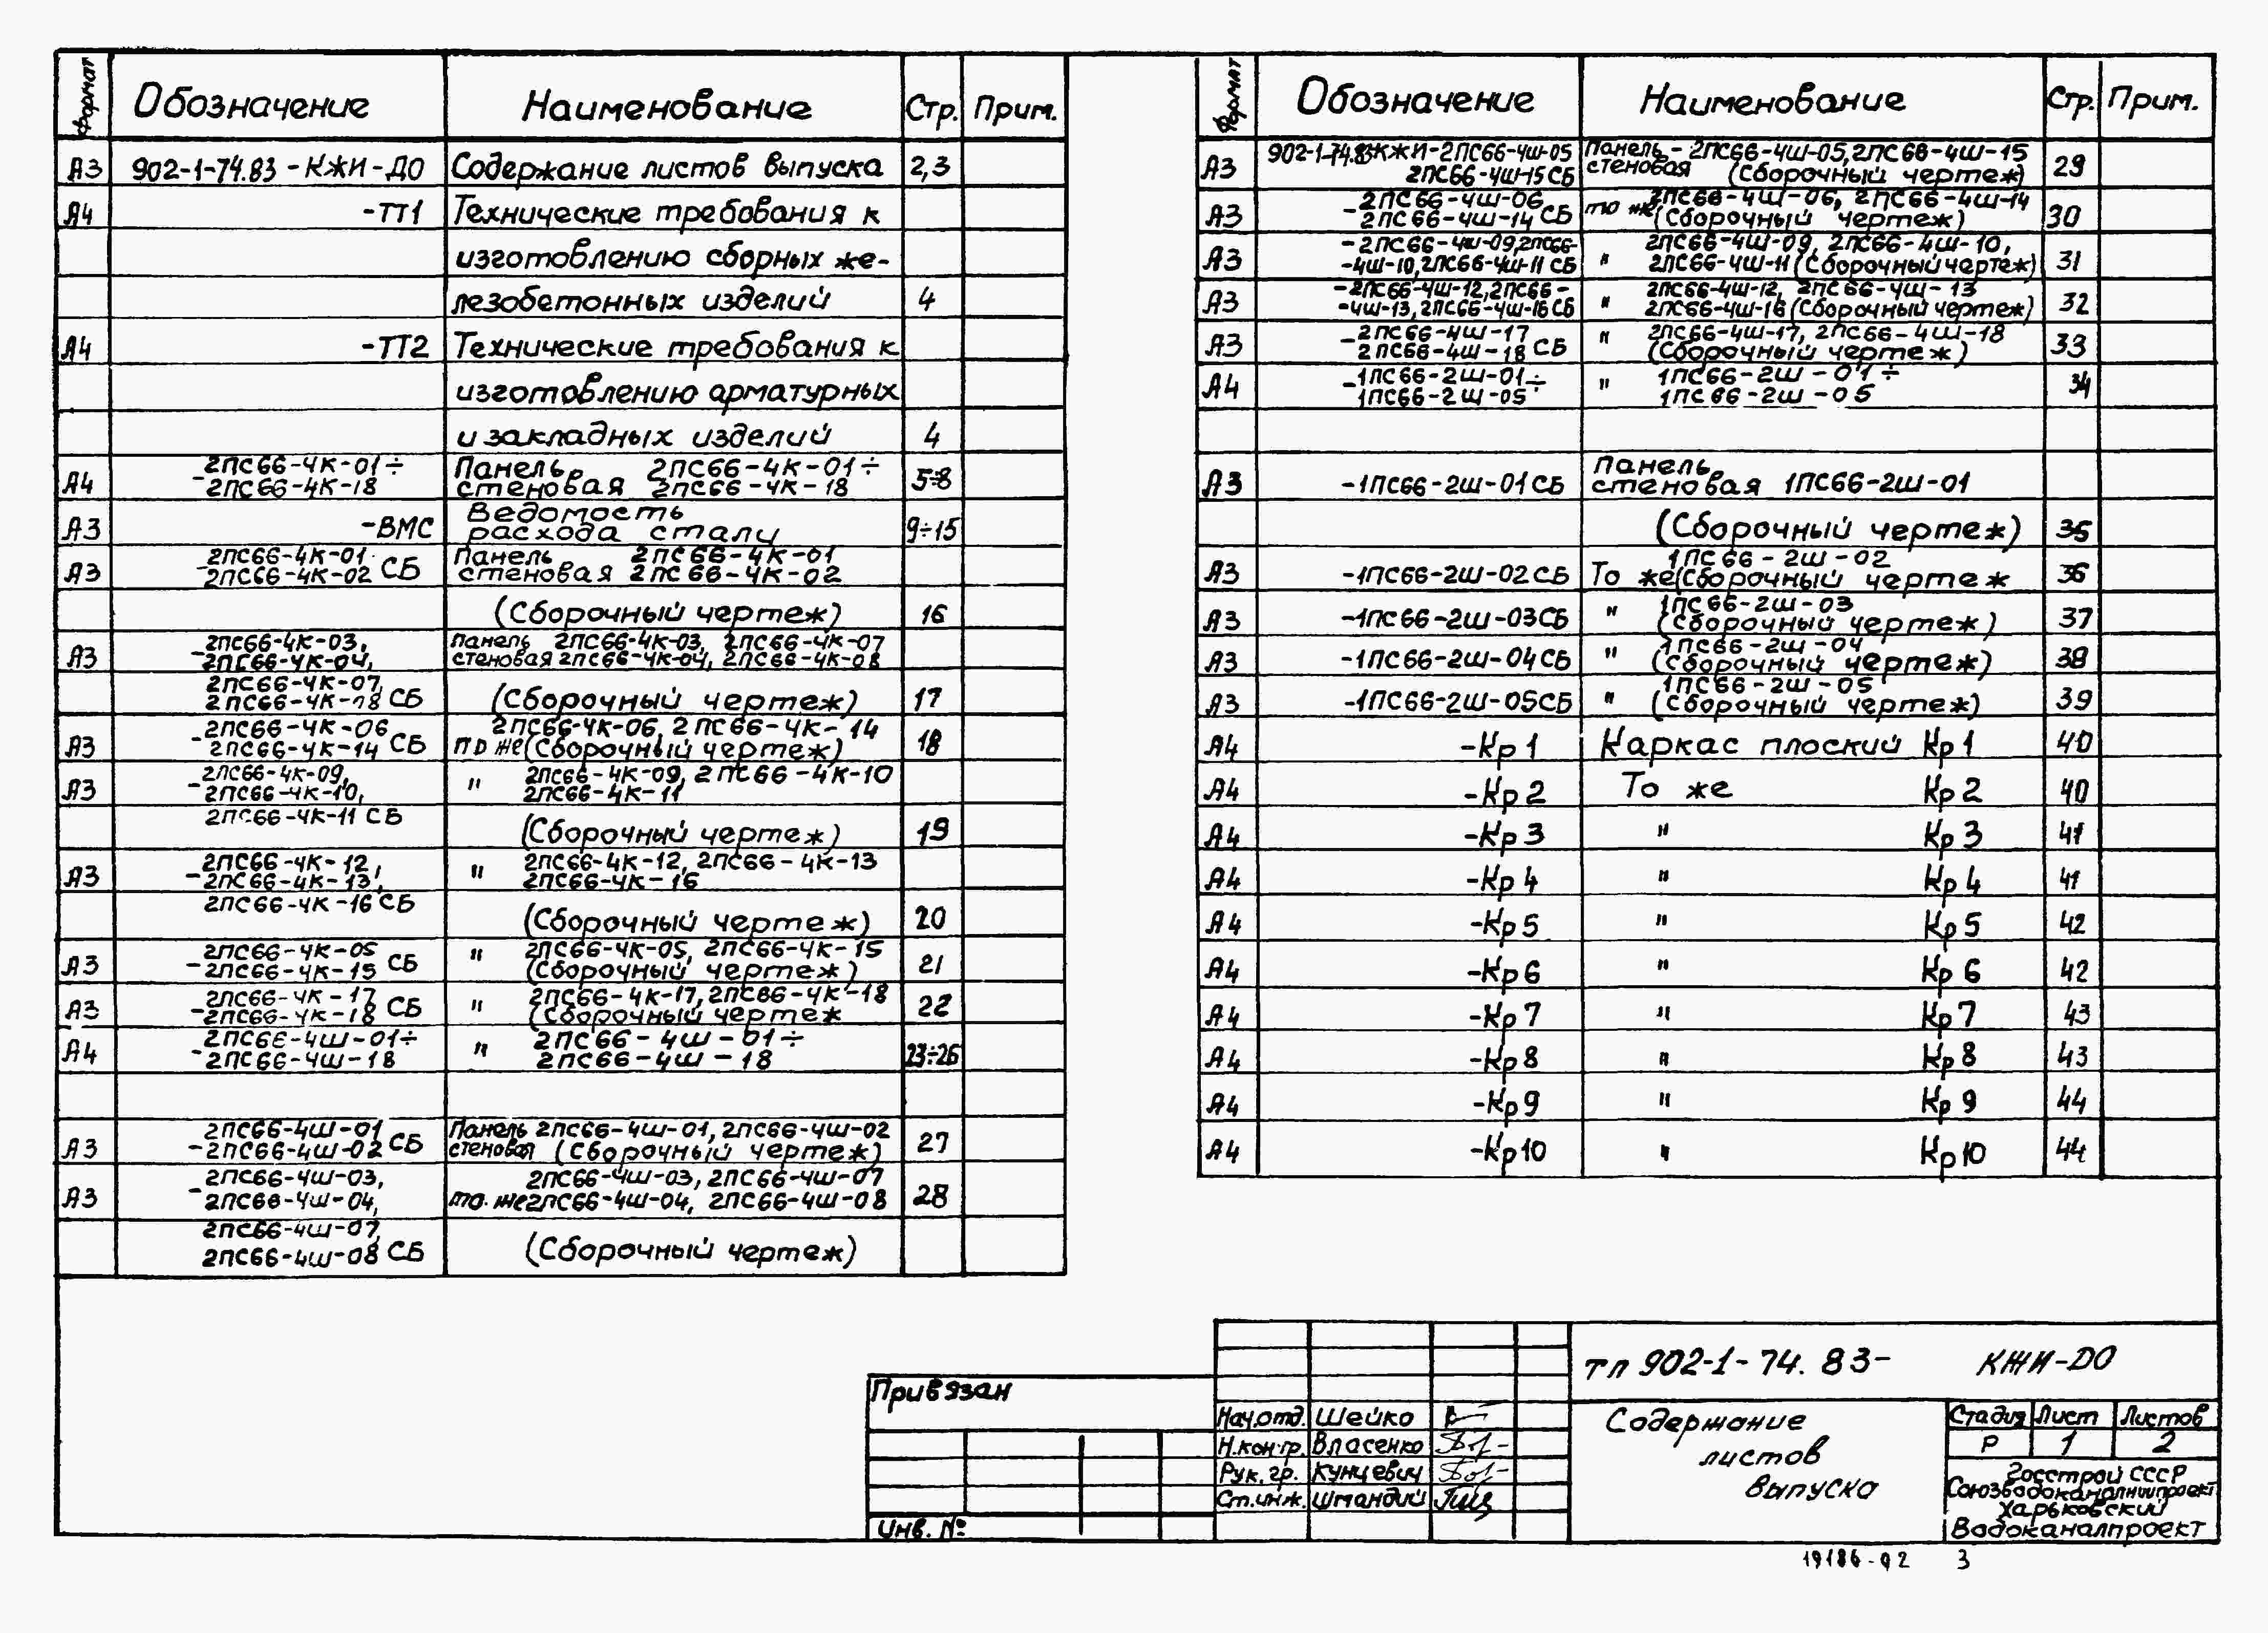 Формат Обозначение Наименование Стр. Прим.
А3 902-1-74.83-КЖИ-ДО Содержание листов выпуска 2,3
А4 -ТТ1 Технические требования к
изготовлению сборных же-
лезобетонных изделий 4
А4 -ТТ2 Технические требования к
изготовлению арматурных
и закладных изделий 4
2ПС66-4К-01÷ Панель 2ПС66-4К-01÷
А4 -2ПС66-4К-18 стеновая 2ПС66-4К-18 5÷8
Ведомость
А3 -ВМС расхода стали 9÷15
2ПС66-4К-01 Панель 2ПС66-4К-01
А3 -2ПС66-4К-02 СБ стеновая 2ПС66-4К-02
(Сборочный чертеж) 16
2ПС66-4К-03, Панель 2ПС66-4К-03, 2ПС66-4К-07
А3 -2ПС66-4К-04, стеновая 2ПС66-4К-04, 2ПС66-4К-08
2ПС66-4К-07,
2ПС66-4К-08 СБ (Сборочный чертеж) 17
-2ПС66-4К-06 2ПС66-4К-06, 2ПС66-4К-14
А3 2ПС66-4К-14 СБ то же (Сборочный чертеж) 18
2ПС66-4К-09, " 2ПС66-4К-09, 2ПС66-4К-10
А3 -2ПС66-4К-10, 2ПС66-4К-11
2ПС66-4К-11 СБ
(Сборочный чертеж) 19
2ПС66-4К-12, " 2ПС66-4К-12, 2ПС66-4К-13
А3 -2ПС66-4К-13, 2ПС66-4К-16
2ПС66-4К-16 СБ
(Сборочный чертеж) 20
2ПС66-4К-05 " 2ПС66-4К-05, 2ПС66-4К-15
А3 -2ПС66-4К-15 СБ (Сборочный чертеж) 21
2ПС66-4К-17 " 2ПС66-4К-17, 2ПС66-4К-18
А3 -2ПС66-4К-18 СБ (Сборочный чертеж 22
2ПС66-4Ш-01÷ " 2ПС66-4Ш-01÷
А4 -2ПС66-4Ш-18 2ПС66-4Ш-18 23÷26
2ПС66-4Ш-01 Панель 2ПС66-4Ш-01, 2ПС66-4Ш-02
А3 -2ПС66-4Ш-02 СБ стеновая (Сборочный чертеж) 27
-2ПС66-4Ш-03, 2ПС66-4Ш-03, 2ПС66-4Ш-07
А3 2ПС66-4Ш-04, то же 2ПС66-4Ш-04, 2ПС66-4Ш-08 28
2ПС66-4Ш-07,
2ПС66-4Ш-08 СБ (Сборочный чертеж)
Формат Обозначение Наименование Стр. Прим.
902-1-74.83 КЖИ-2ПС66-4Ш-05 Панель - 2ПС66-4Ш-05, 2ПС66-4Ш-15
А3 2ПС66-4Ш-15 СБ стеновая (Сборочный чертеж) 29
-2ПС66-4Ш-06 2ПС66-4Ш-06, 2ПС66-4Ш-14
А3 2ПС66-4Ш-14 СБ то же (Сборочный чертеж) 30
-2ПС66-4Ш-09, 2ПС66- 2ПС66-4Ш-09, 2ПС66-4Ш-10,
А3 -4Ш-10, 2ПС66-4Ш-11 СБ " 2ПС66-4Ш-11 (Сборочный чертеж) 31
-2ПС66-4Ш-12, 2ПС66- 2ПС66-4Ш-12, 2ПС66-4Ш-13
А3 -4Ш-13, 2ПС66-4Ш-16 СБ " 2ПС66-4Ш-16 (Сборочный чертеж) 32
-2ПС66-4Ш-17 " 2ПС66-4Ш-17, 2ПС66-4Ш-18
А3 2ПС66-4Ш-18 СБ (Сборочный чертеж) 33
-1ПС66-2Ш-01÷ " 1ПС66-2Ш-01÷
А4 1ПС66-2Ш-05 1ПС66-2Ш-05 34
Панель
А3 -1ПС66-2Ш-01 СБ стеновая 1ПС66-2Ш-01
(Сборочный чертеж) 35
1ПС66-2Ш-02
А3 -1ПС66-2Ш-02 СБ То же (Сборочный чертеж 36
1ПС66-2Ш-03
А3 -1ПС66-2Ш-03 СБ " (Сборочный чертеж) 37
1ПС66-2Ш-04
А3 -1ПС66-2Ш-04 СБ " (Сборочный чертеж) 38
1ПС66-2Ш-05
А3 -1ПС66-2Ш-05 СБ " (Сборочный чертеж) 39
А4 -Кр 1 Каркас плоский Кр 1 40
А4 -Кр 2 То же Кр 2 40
А4 -Кр 3 " Кр 3 41
А4 -Кр 4 " Кр 4 41
А4 -Кр 5 " Кр 5 42
А4 -Кр 6 " Кр 6 42
А4 -Кр 7 " Кр 7 43
А4 -Кр 8 " Кр 8 43
А4 -Кр 9 " Кр 9 44
А4 -Кр 10 " Кр 10 44
Привязан
Инв. №
Нач.отд. Шейко
Н.контр. Власенко
Рук. гр. Кунцевич
Ст.инж. Шмандий
ТП 902-1-74.83- КЖИ-ДО
Содержание
листов
выпуска
Стадия Лист Листов
Р 1 2
Госстрой СССР
Союзводоканалниипроект
Харьковский
Водоканалпроект
19186-02 3